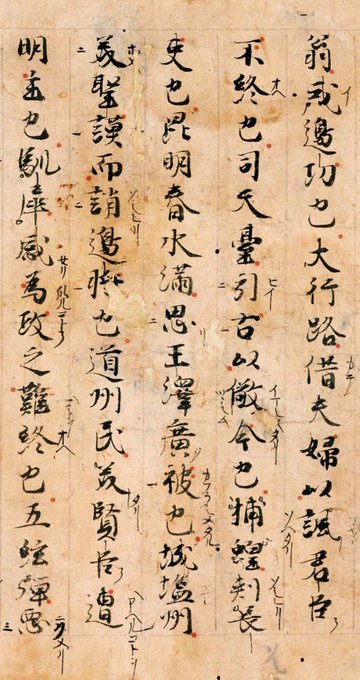 翁戒邊功也大行路借夫婦以諷君臣
不終也司天臺引古以儆今也捕蝗刺長
吏也昆明春水滿思王澤廣被也城塩州
美聖謨而誚邊將也道州民美賢臣遭
明主也馴犀感為政之難終也五絃彈思